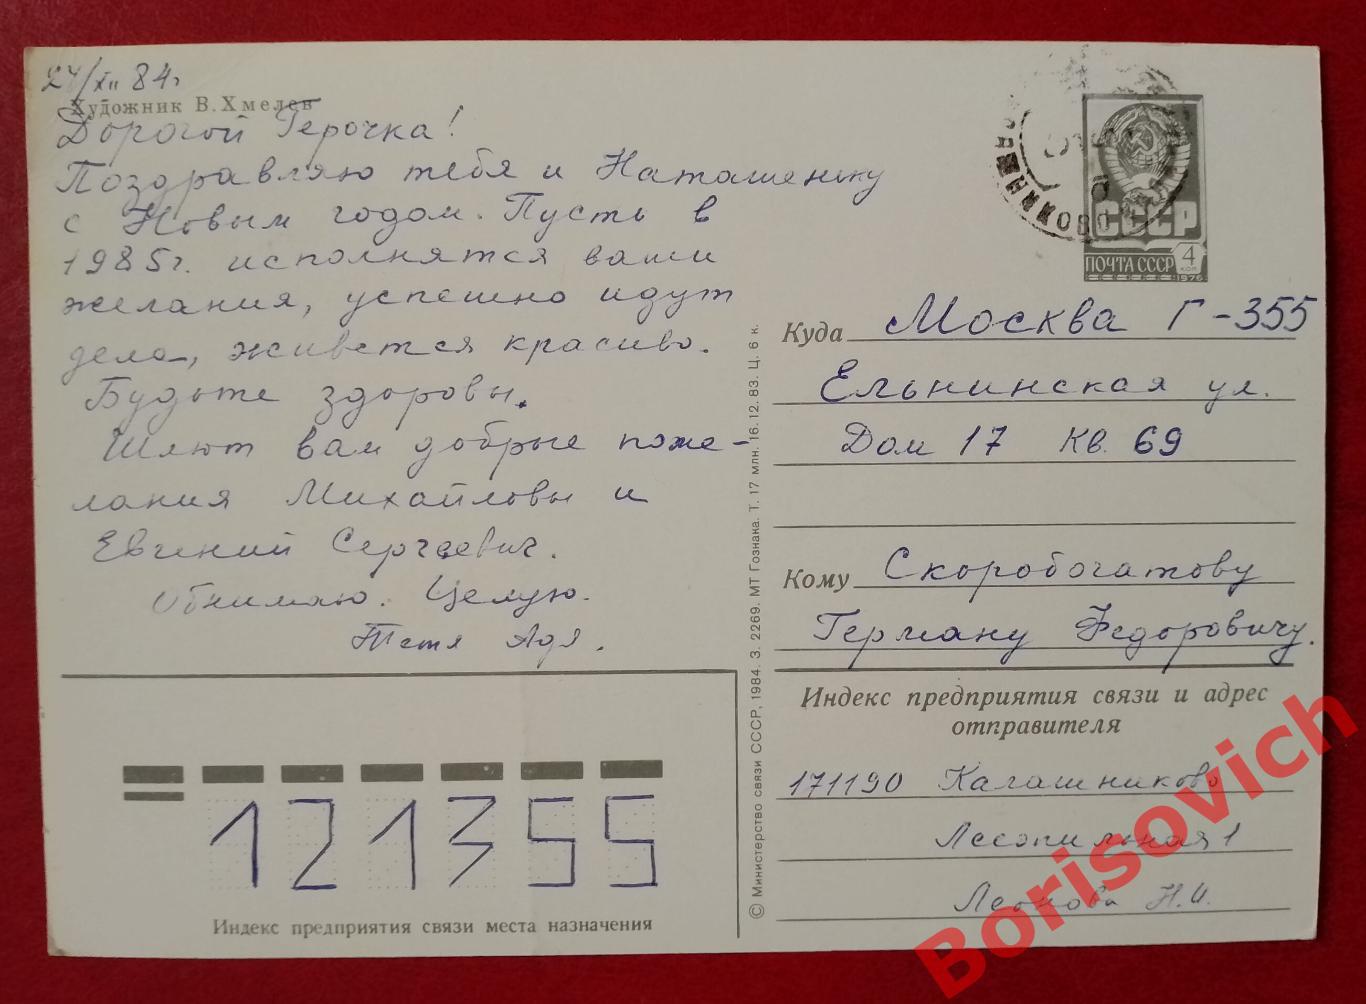 24/XII 84г
Художник В. Хмелев
Дорогой Герочка!
Поздравляю тебя и Наташеньку
с Новым годом. Пусть в
1985г. исполнятся ваши
желания, успешно идут
дела, живется красиво.
Будьте здоровы.
Шлют вам добрые поже-
лания Михайловы и
Евгений Сергеевич.
Обнимаю. Целую.
Тетя Адя.
121355
Индекс предприятия связи места назначения
© Министерство связи СССР, 1984. З. 2269. МТ Гознака. Т. 17 млн. 16.12.83. Ц. 6 к.
СССР
ПОЧТА СССР 4 КОП
Куда Москва Г-355
Ельнинская ул.
Дом 17 Кв. 69
Кому Скоробогатову
Герману Федоровичу.
Индекс предприятия связи и адрес
отправителя
171190 Калашниково
Лесопильная 1
Леонова Н.И.
Borisovich